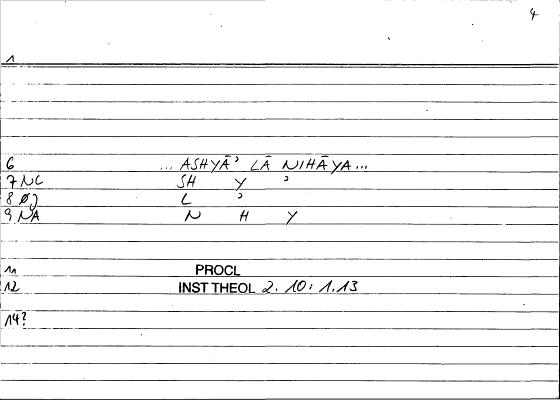 4
1
6 ... ASHYĀʾ LĀ NIHĀYA...
7 NC SH Y ʾ
8 ØJ L ʾ
9 NA N H Y
11 PROCL
12 INST THEOL 2. 10: 1.13
14?